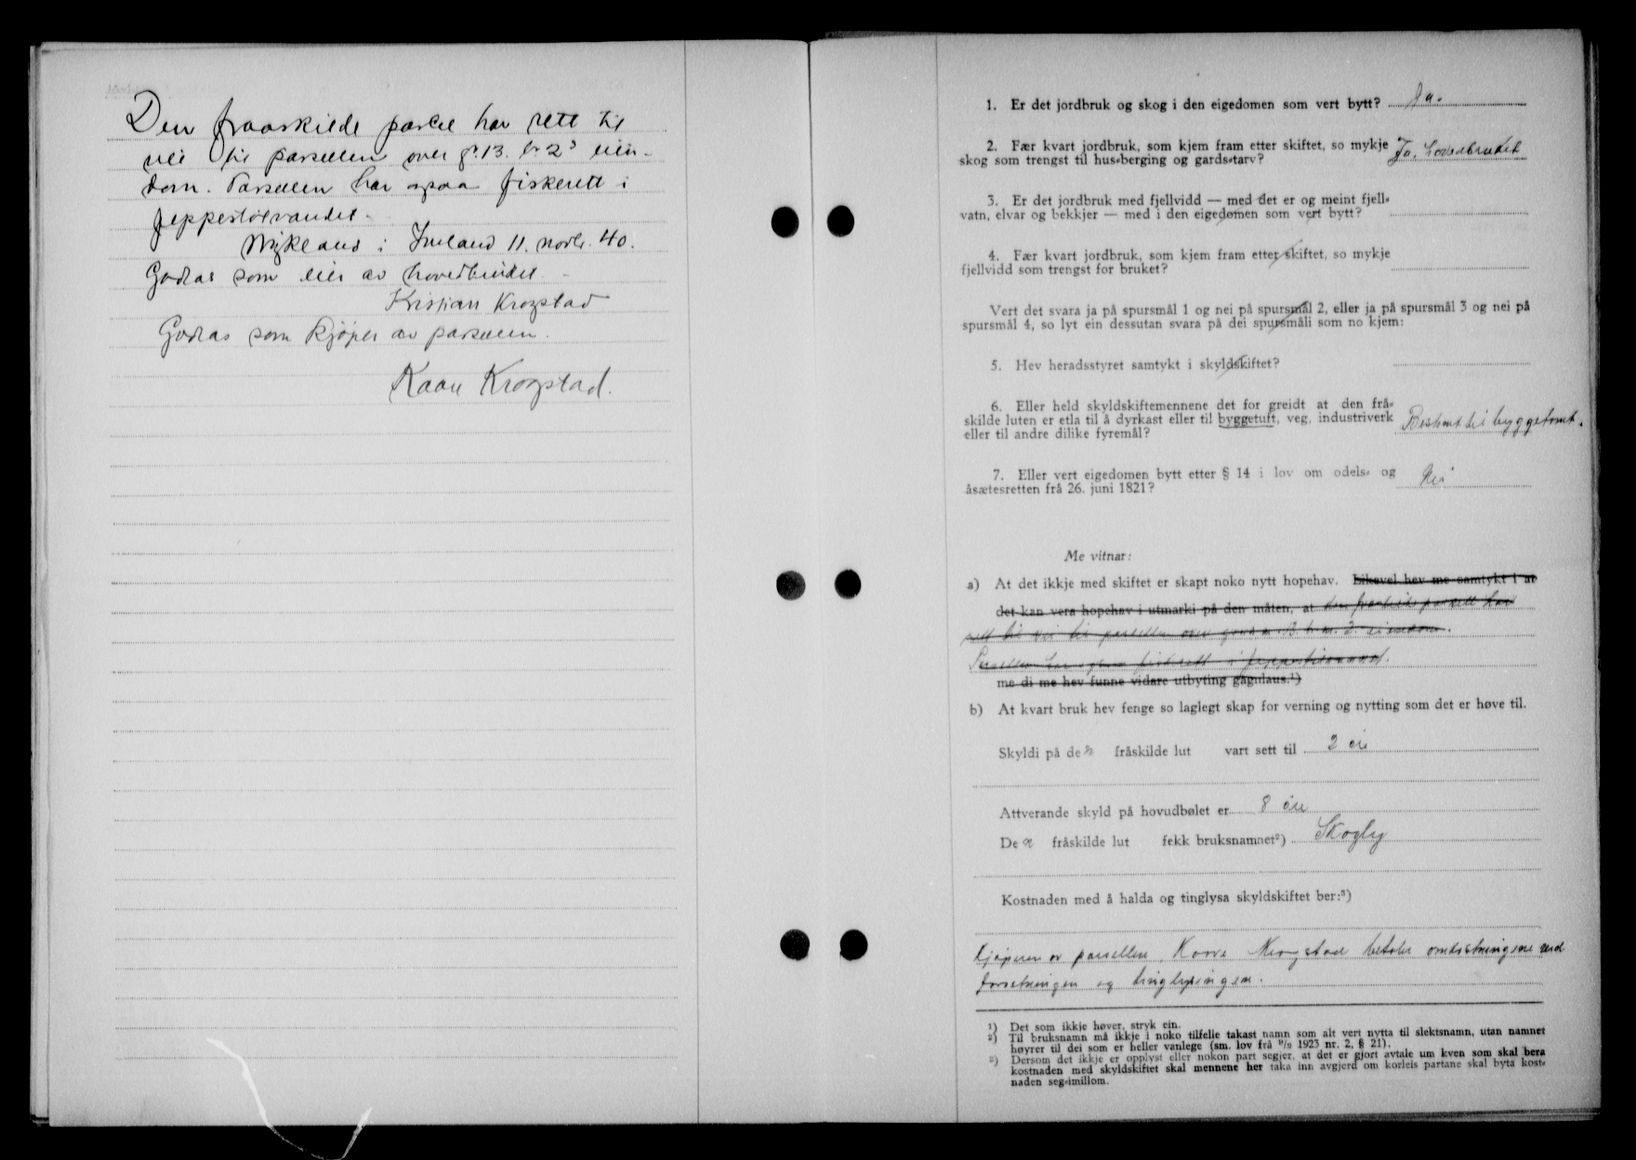 Den fraaskilde parcel har rett til
vei til parsellen over gr. 13. br 2 eien-
dom. Parsellen har ogsaa fiskerett i
Jeppestølvandet.
Mykland i Iveland 11. novbr. 40.
Godtas som eier av hovedbruket.
Kristian Krogstad
Godtas som kjøper av parsellen.
Kaare Krogstad.
1. Er det jordbruk og skog i den eigedomen som vert bytt? Ja.
2. Fær kvart jordbruk, som kjem fram etter skiftet, so mykje
skog som trengst til hus-berging og gards-tarv? Ja, hovedbruket
3. Er det jordbruk med fjellvidd — med det er og meint fjell-
vatn, elvar og bekkjer — med i den eigedomen som vert bytt?
4. Fær kvart jordbruk, som kjem fram etter skiftet, so mykje
fjellvidd som trengst for bruket?
Vert det svara ja på spursmål 1 og nei på spursmål 2, eller ja på spursmål 3 og nei på
spursmål 4, so lyt ein dessutan svara på dei spursmåli som no kjem:
5. Hev heradsstyret samtykt i skyldskiftet?
6. Eller held skyldskiftemennene det for greidt at den frå-
skilde luten er etla til å dyrkast eller til byggetuft, veg, industriverk
eller til andre dilike fyremål? Bestemt til byggetomt.
7. Eller vert eigedomen bytt etter § 14 i lov om odels- og
åsætesretten frå 26. juni 1821? Nei
Me vitnar:
a) At det ikkje med skiftet er skapt noko nytt hopehav. Likevel hev me samtykt i at
det kan vera hopehav i utmarki på den måten, at den fraskilte parsell har
rett til vei til parsellen over
Parsellen har ogsaa fiskerett i
me di me hev funne vidare utbyting gagnlaus.¹)
b) At kvart bruk hev fenge so laglegt skap for verning og nytting som det er høve til.
Skyldi på den fråskilde lut vart sett til 2 øre
Attverande skyld på hovudbølet er 8 øre
Den fråskilde lut fekk bruksnamnet²) Skogly
Kostnaden med å halda og tinglysa skyldskiftet ber:³)
kjøperen av parsellen, Kaare Krogstad betaler omkostningene ved
forretningen og tinglysingen.
¹) Det som ikkje høver, stryk ein.
²) Til bruksnamn må ikkje i noko tilfelle takast namn som alt vert nytta til slektsnamn, utan namnet
høyrer til dei som er heller vanlege (sm. lov frå ⁹/₂ 1923 nr. 2, § 21).
³) Dersom det ikkje er opplyst eller nokon part segjer, at det er gjort avtale um kven som skal bera
kostnaden med skyldskiftet skal mennene her taka inn avgjerd om korleis partane skal byta kost-
naden seg-imillom.